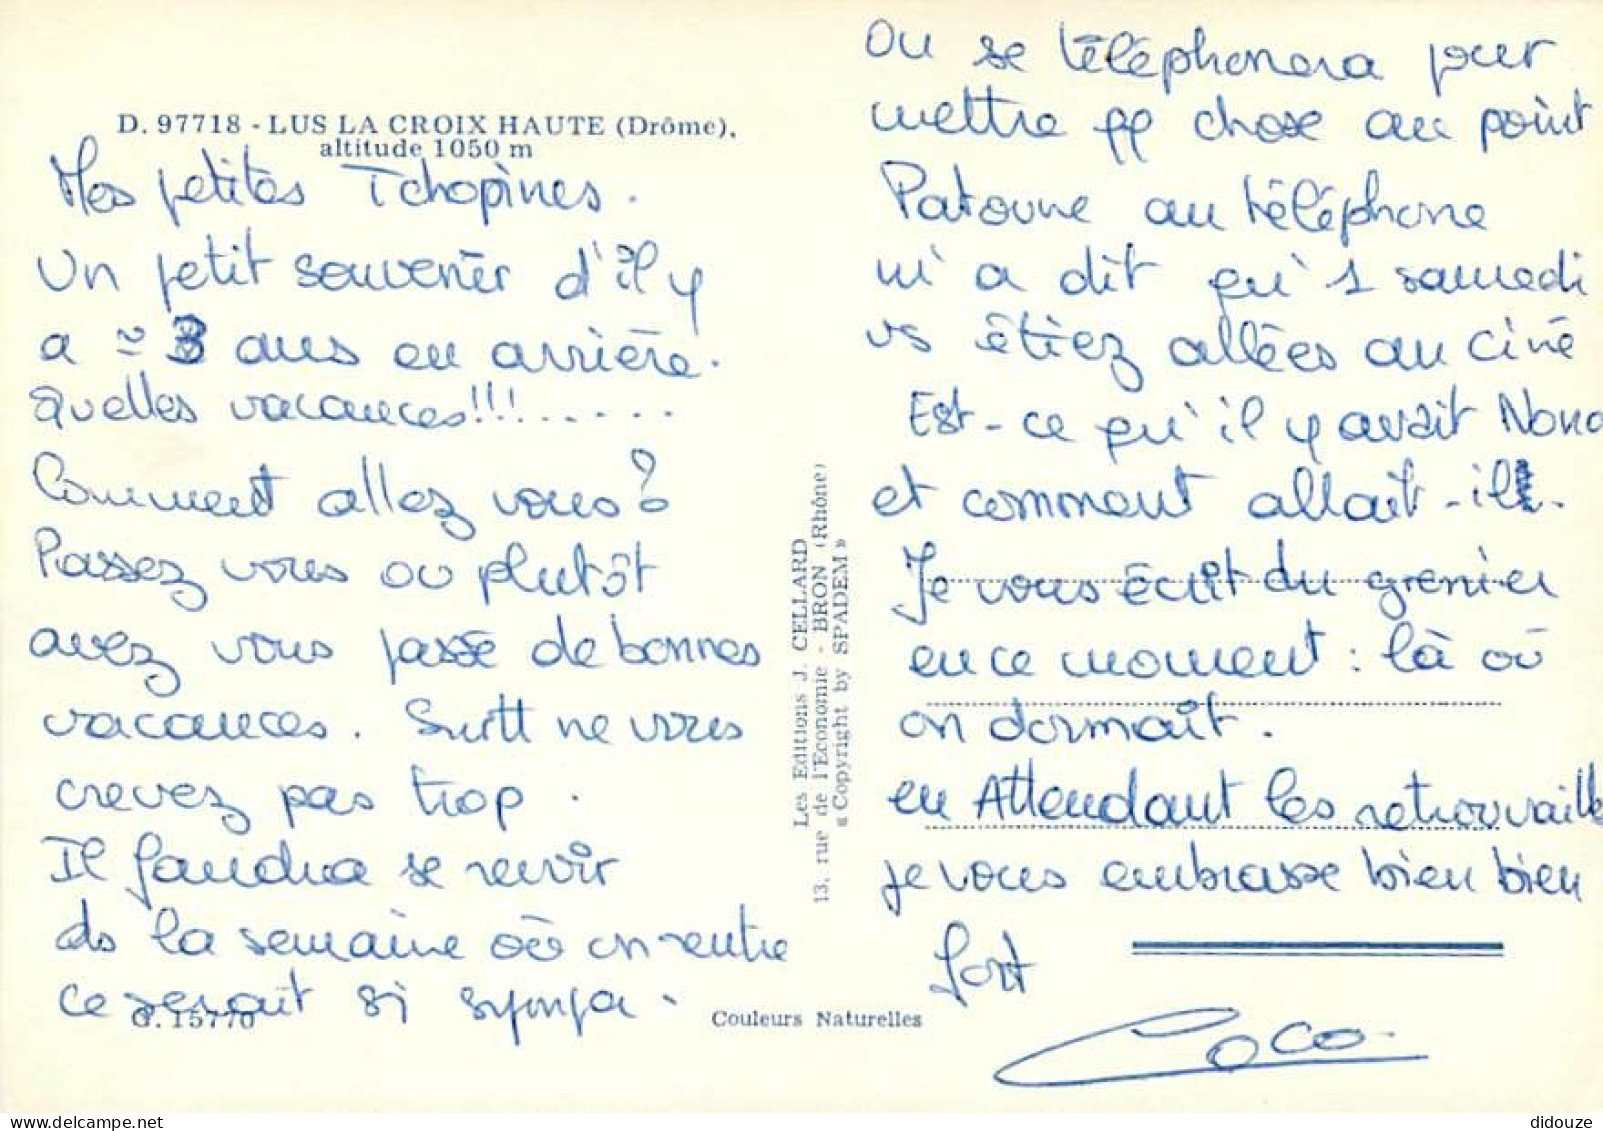 D. 97718 - LUS LA CROIX HAUTE (Drôme),
altitude 1050 m
Mes petites Tchopines.
Un petit souvenir d'il y
a ≃ 3 ans en arrière.
Quelles vacances!!!.....
Comment allez vous?
Passez vous ou plutôt
avez vous passé de bonnes
vacances. Surtt ne vous
crevez pas trop.
Il faudra se revoir
ds la semaine où on rentre
ce serait si sympa.
G. 15770
Couleurs Naturelles
Les Editions J. CELLARD
13, rue de l'Economie - BRON (Rhône)
« Copyright by SPADEM »
On se téléphonera pour
mettre qq chose au point
Patoune au téléphone
m'a dit qu'1 samedi
vs êtiez allées au ciné
Est-ce qu'il y avait Nono
et comment allait-il.
Je vous écrit du grenier
en ce moment : là où
on dormait.
en Attendant les retrouvaille
je vous embrasse bien bien
fort
Coco
didouze